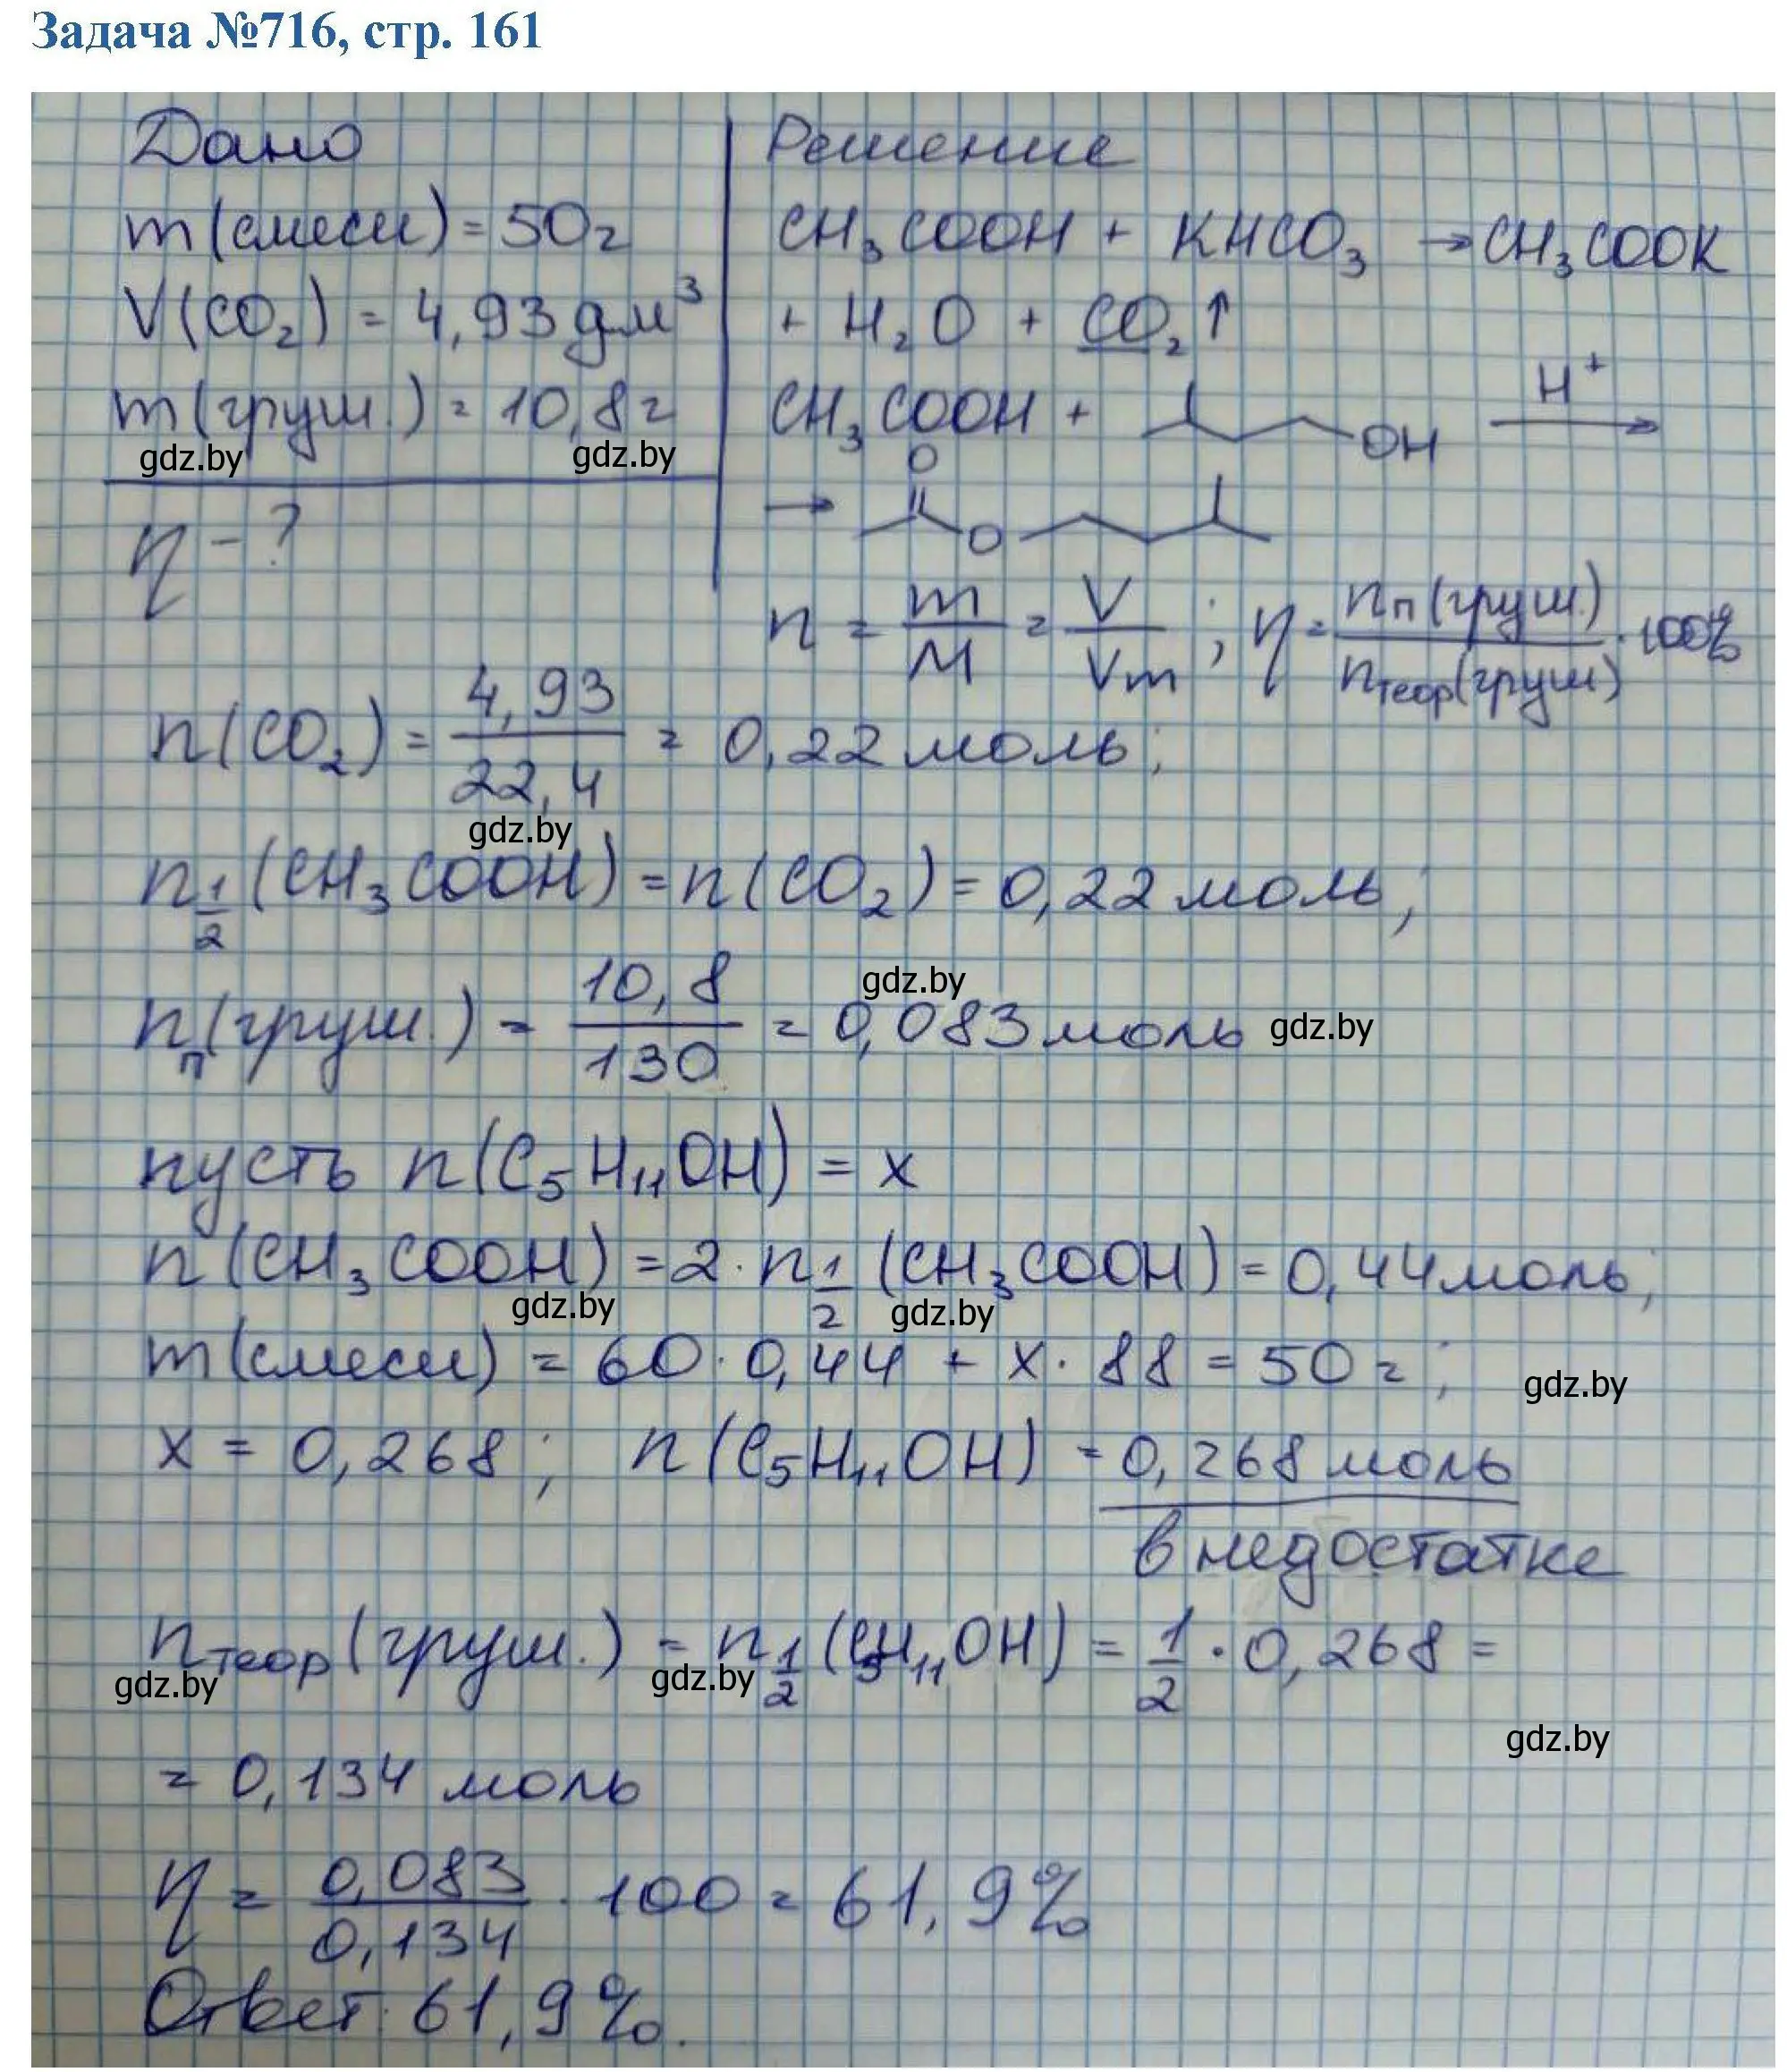 Задача №716, стр. 161
Дано
m(смеси) = 50г
V(CO₂) = 4,93 дм³
m(груш.) = 10,8г
gdz.by gdz.by
η - ?
Решение
CH₃COOH + KHCO₃ → CH₃COOK
+ H₂O + CO₂↑
CH₃COOH + OH H⁺ →
→ O O
n = m/M = V/Vm ; η = nп(груш.)/nтеор(груш) · 100%
n(CO₂) = 4,93/22,4 = 0,22 моль;
gdz.by
n½(CH₃COOH) = n(CO₂) = 0,22 моль;
gdz.by
nп(груш.) = 10,8/130 = 0,083 моль gdz.by
пусть n(C₅H₁₁OH) = x
n(CH₃COOH) = 2 · n½(CH₃COOH) = 0,44 моль;
gdz.by gdz.by
m(смеси) = 60 · 0,44 + x · 88 = 50г;
gdz.by
x = 0,268; n(C₅H₁₁OH) = 0,268 моль
в недостатке
nтеор(груш.) = n½(C₅H₁₁OH) = ½ · 0,268 =
gdz.by gdz.by
gdz.by
= 0,134 моль
η = 0,083/0,134 · 100 = 61,9%
Ответ: 61,9%.